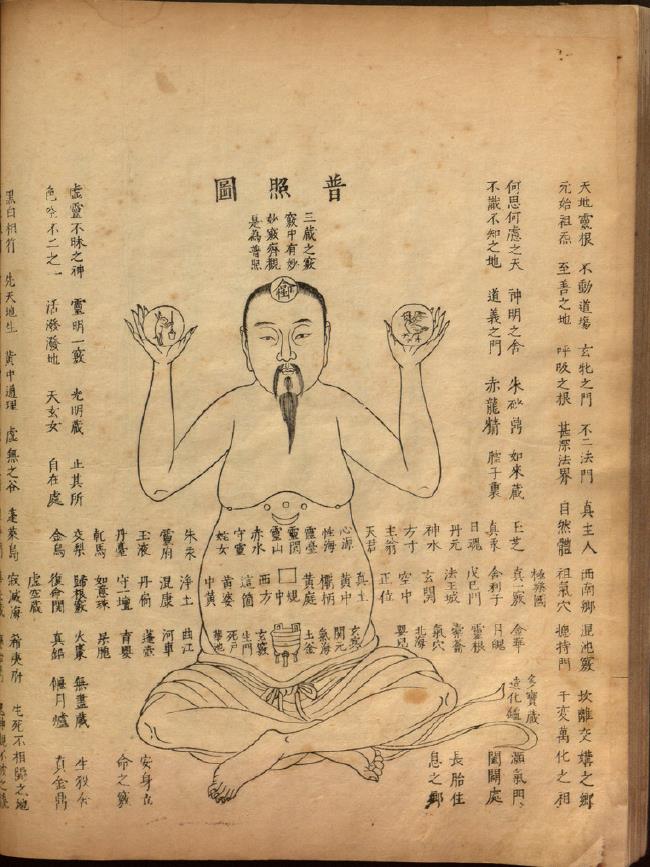 普照圖
天地靈根 不動道場 玄牝之門 不二法門 真主人 西南鄉 混沌竅 坎離交媾之鄉
元始祖炁 至善之地 呼吸之根 甚深法界 自然體 祖氣穴 總持門 千變萬化之相
極樂國 多寶藏
何思何慮之天 神明之舍 朱砂鼎 如來藏 玉芝 真一竅 金華 造化 灝氣門
不識不知之地 道義之門 赤龍精 腔子裏 真汞 舍利子 月魄 闔闢處
日魂 戊己門 靈根
丹元 法王城 長胎住
神水 玄關 氣穴 息之鄉
方寸 空中 北海
主翁 正位 嬰兒
天君
三藏之竅
竅中有妙
妙竅齊觀
是為普照
心源 真土 玄
性海 黃中 關元
靈臺 衝柄 氣海
靈關 黃庭 土釜
靈山 規中
赤水 西方 玄竅
守靈 這箇 生門
姹女 黃婆 死戶
中黃 華池
朱汞 淨土 曲江
靈府 混康 河車
玉液 丹 蓬壺 安身立
丹臺 守一壇 青嬰 命之竅
乾馬 如意珠
交梨 歸根竅 火棗
金烏 復命關 真鉛
虛空藏
虛靈不昧之神 靈明一竅 光明藏 止其所 無盡藏 生殺
色空不二之一 活潑潑地 天玄女 自在處 偃月爐 真金鼎
黑白相符 先天地生 黃中通理 虛無之谷 蓬萊島 寂滅海 希夷府 生死不相關之地